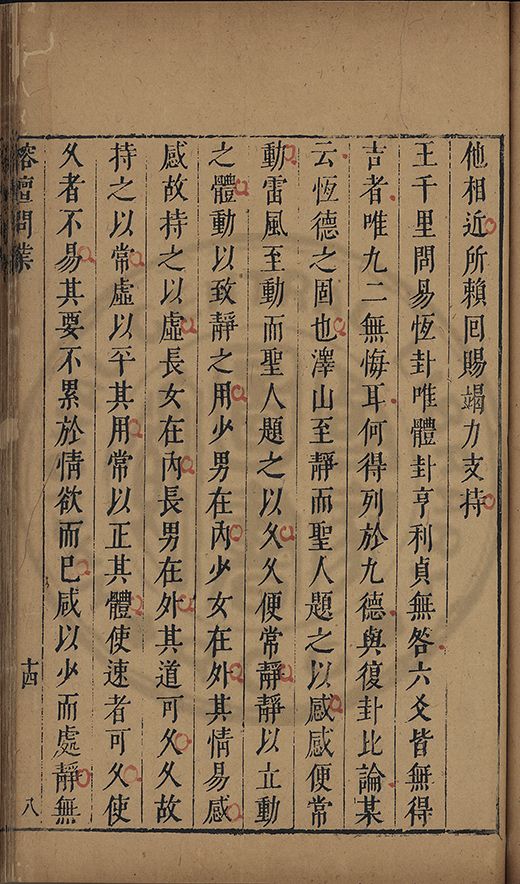 他相近所賴回賜竭力支持
王千里問易恆卦唯體卦亨利貞無咎六爻皆無得
吉者唯九二無悔耳何得列於九德與復卦比論某
云恆德之固也澤山至靜而聖人題之以感感便常
動雷風至動而聖人題之以久久便常靜靜以立動
之體動以致靜之用少男在內少女在外其情易感
感故持之以虛長女在內長男在外其道可久久故
持之以常虛以平其用常以正其體使速者可久使
久者不易其要不累於情欲而已咸以少而處靜無
榕壇問業
十四
八